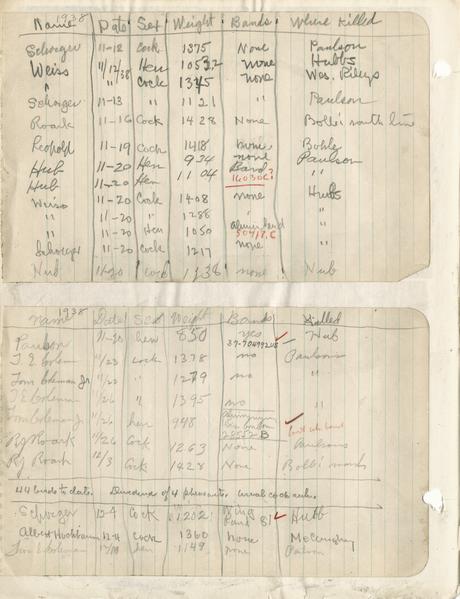 1938
Name Date Sex Weight Bands Where Killed
Schorger 11-12 Cock 1375 None Paulson
Weiss 11/12/38 Hen 1053 none Hubbs
" " Cock 1345 none Wes. Rileys
Schorger 11-13 " 1121 " Paulson
Roark 11-16 Cock 1428 None Bolli's north line
Leopold 11-19 Cock 1418 none Bobby
Hub 11-20 Hen 934 none Paulson
Hub 11-20 Hen 1104 Band "
16030C?
Weiss 11-20 Cock 1408 none Hubbs
11-20 " 1288 "
11-20 Hen 1050 aluminum band "
50417C
Schorger 11-20 Cock 1217 none "
Hub 11-20 Cock 1238 none Hub
1938
Name Date Sex Weight Bands Killed
Paulson 11-20 hen 850 yes Hub
37-704992US
T E Coleman 11/23 cock 1378 no Paulsons
Tom Coleman Jr 11/23 " 1279 no "
T E Coleman 11/26 " 1395 no "
Tom Coleman Jr 11/26 hen 948 Aluminum
28552B
RJ Roark 11/26 Cock 1263 None Paulsons
RJ Roark 12/3 Cock 1428 None Bolli's marsh
44 birds to date. Dividend of 4 pheasants. equal cock each.
Schorger 12-4 Cock 1202 Wing Band 81 Hubb
Albert Hochbaum 12-4 cock 1360 none McCaughey
Tom Coleman hen 1149 none